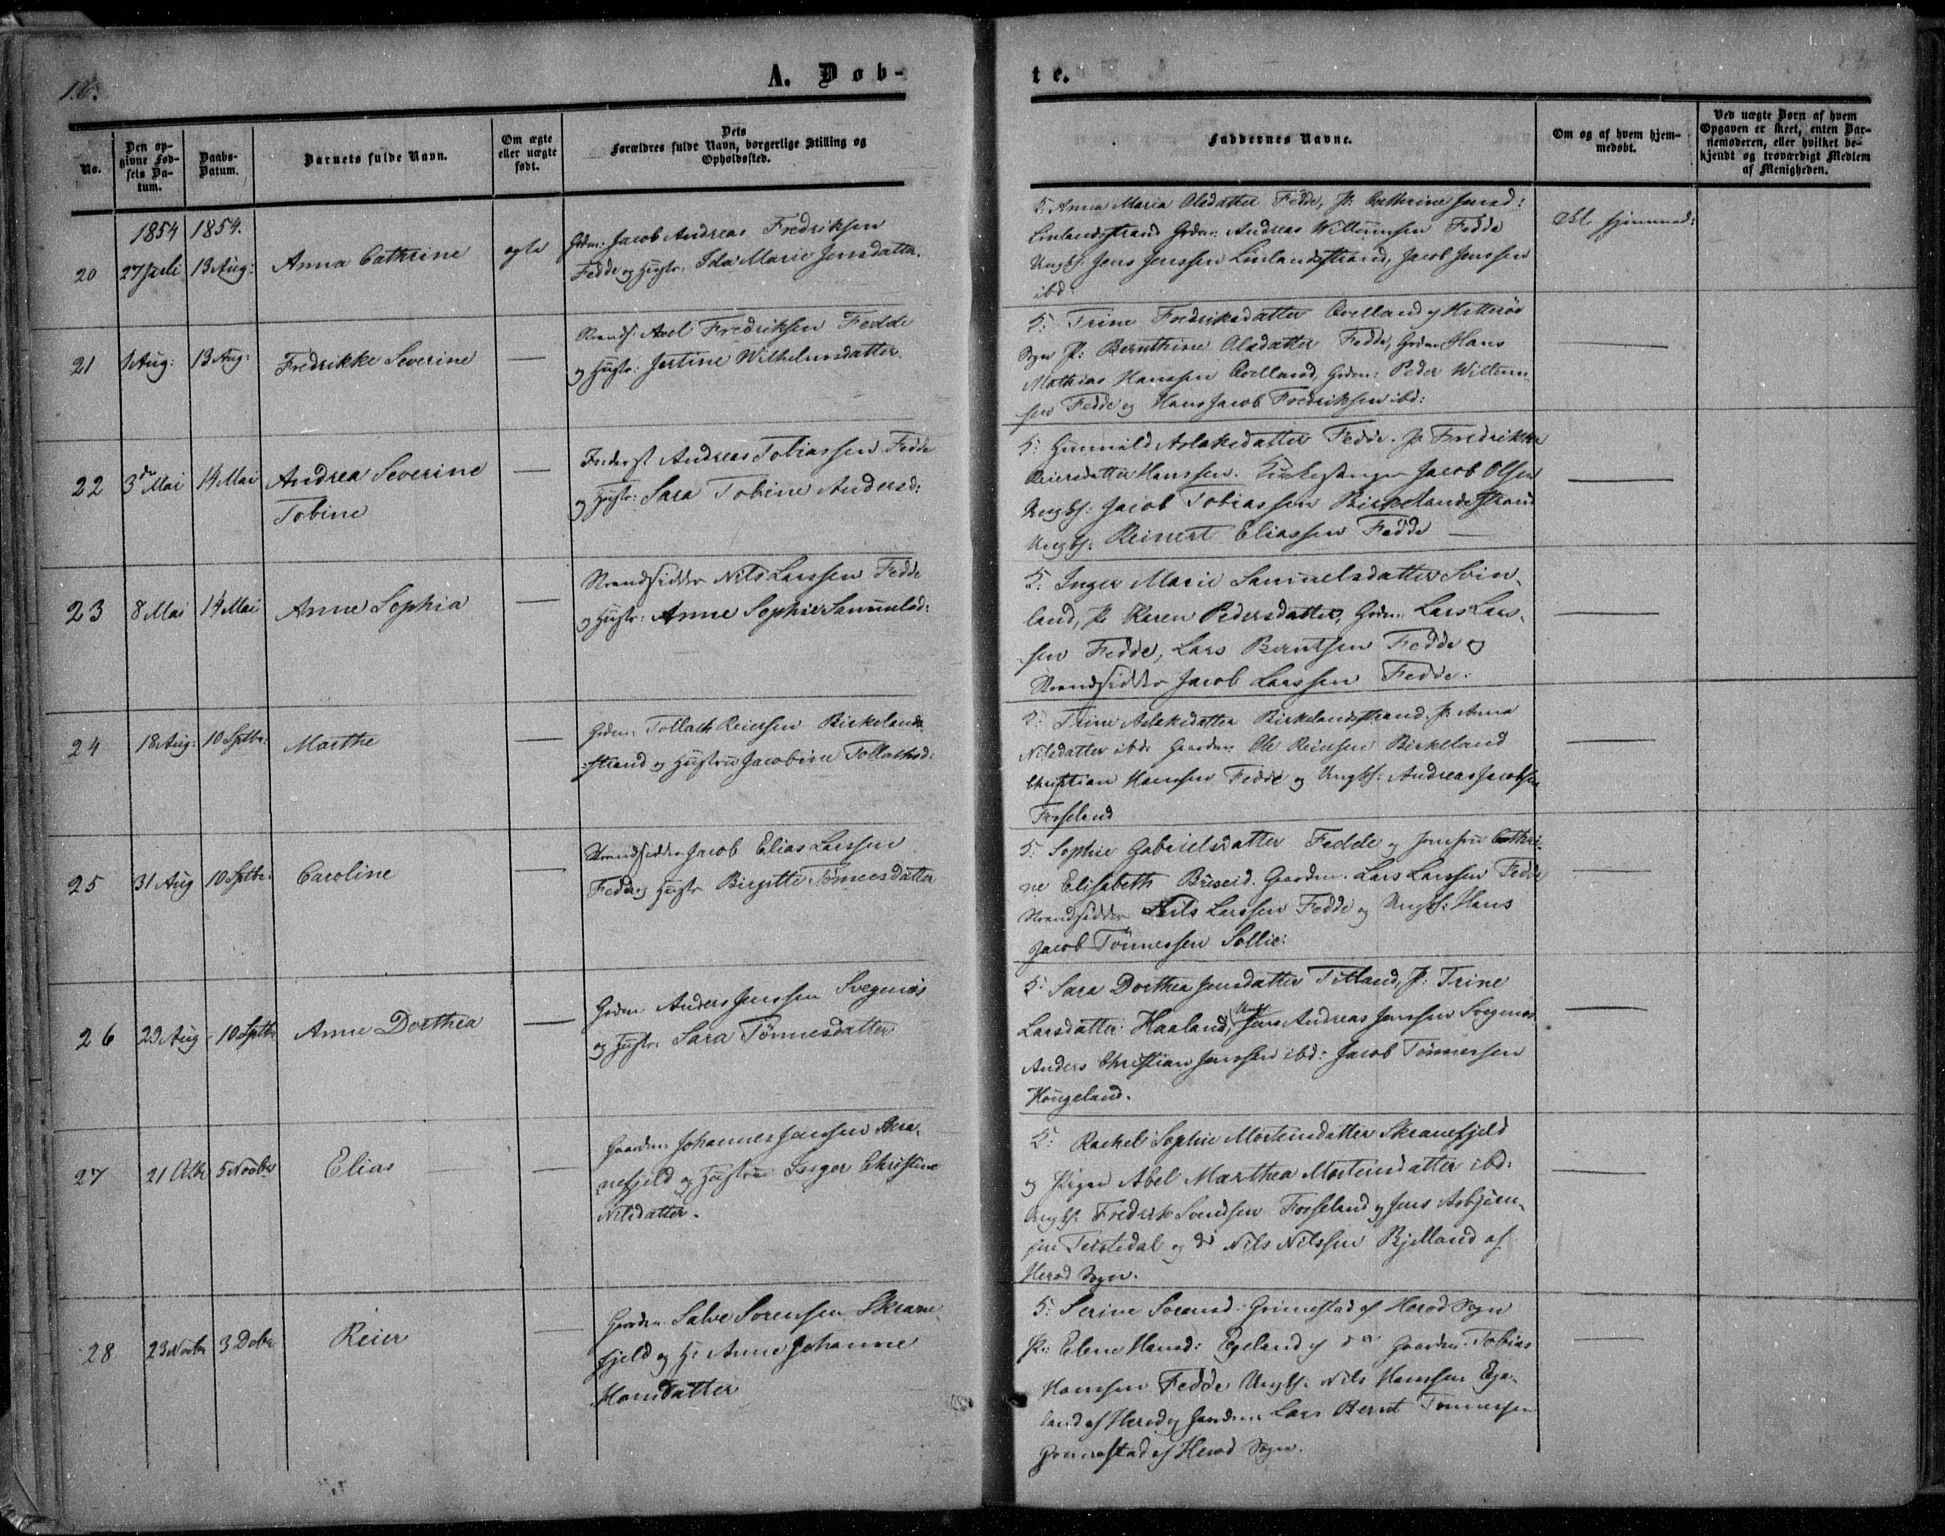 16.
A. Døb-
te.
No.
Den op-
givne Fød-
sels Da-
tum.
Daabs-
Datum.
Barnets fulde Navn.
Om ægte
eller uægte
født.
Dets
Forældres fulde Navn, borgerlige Stilling og
Opholdssted.
Faddernes Navne.
Om og af hvem hjem-
medøbt.
Ved uægte Børn af hvem
Opgaven er skeet, enten Bar-
nemoderen, eller hvilket be-
kjendt og troværdigt Medlem
af Menigheden.
1854 1854.
20 27 Juli 13 Aug: Anna Cathrine ægte
Grdm: Jacob Andreas Fredriksen
Fedde og Hustr: Ida Marie Jensdatter.
5: Anna Maria Olsdatter Fedde, P: Cathrine Jensd:
Linlandstrand Grdm: Andreas Willumsen Fedde
Ungk: Jens Jenssen Linlandstrand, Jacob Jenssen
ibd:
21 1 Aug: 13 Aug: Fredrikke Severine —
Strands: Axel Fredriksen Fedde
og Hustr: Jertine Wilhelmsdatter.
5: Trine Fredriksdatter Qvelland af Hitterø
Sogn P: Bernthine Olsdatter Fedde, Grdm: Hans
Mathias Hanssen Qvelland, Grdm: Peder Willum-
sen Fedde og Hans Jacob Fredriksen ibd:
22 3de Mai 14 Mai Andrea Severine
Tobine —
Inderst Andreas Tobiassen Fedde
og Hustr: Sara Tobine Andersd:
5: Gunnild Aslaksdatter Fedde. P: Fredrikke
Reiersdatter Hanssen. Kirkesanger Jacob Olsen
Ungk: Jacob Tobiassen Birkelandsstrand
Ungk: Reinert Eliassen Fedde —
23 8 Mai 14 Mai Anne Sophia —
Strandsidder Nils Larssen Fedde
og Hustr: Anne Sophie Samuelsd:
5: Inger Marie Samuelsdatter Svin-
land, P: Karen Pedersdatter, Grdm: Lars Lars-
sen Fedde, Lars Berntsen Fedde og
Strandsidder Jacob Larssen Fedde.
24 18 Aug: 10 Sptbr: Marthe —
Grdm: Tollath Reiersen Birkelands-
strand og Hustru Jacobine Tollathsd:
5: Trine Aslaksdatter Birkelandstrand. P: Anna
Nilsdatter ibd: Gaardm: Ole Reiersen Birkeland
Christian Hanssen Fedde og Ungk: Andreas Jacobsen
Fosseland
25 31 Aug 10 Sptbr: Caroline —
Strandsidder Jacob Elias Larssen
Fedde og Hustr Birgitte Tønnesdatter
5: Sophie Gabrielsdatter Fedde og Jomfru Cathri-
ne Elisabeth Briseid. Gaardm. Lars Larssen Fedde
Strandsidder Nils Larssen Fedde og Ungk: Hans
Jacob Tönnessen Sollie:
26 29 Aug 10 Sptbr Anne Dorthea —
Grdm: Anders Jenssen Svegenæs
og Hustr. Sara Tønnesdatter
5: Sara Dorthea Jensdatter Titland, P: Trine
Larsdatter Haaland, Ungk Jens Andreas Jenssen Svegenæs
Anders Christian Jenssen ibd: Jacob Tönnessen
Haugeland.
27 21 Octbr 5 Novbr Elias —
Gaardm: Johannes Jenssen Skra-
nefjeld og Hustru Inger Christine
Nilsdatter.
5: Rachel Sophie Mortensdatter Skranefjeld
og Pigen Abel Marthea Mortensdatter ibd:
Ungk: Fredrik Svendsen Fosseland og Jens Asbjörn-
sen Teistedal og do Nils Nilssen Bjelland af
Herod Sogn.
28 23 Novbr 3 Dcbr Reier —
Gaardm: Salve Sørensen Skrane-
fjeld og H: Anne Johanne
Hansdatter
5: Serine Sorensd: Grimestad af Herod Sogn
P: Elene Hansd: Egeland af do Gaardm: Tobias
Hanssen Fedde Ungk: Nils Hanssen Ege-
land af Herod og Gaardm: Lars Bernt Tønnessen
Grimestad af Herod Sogn.